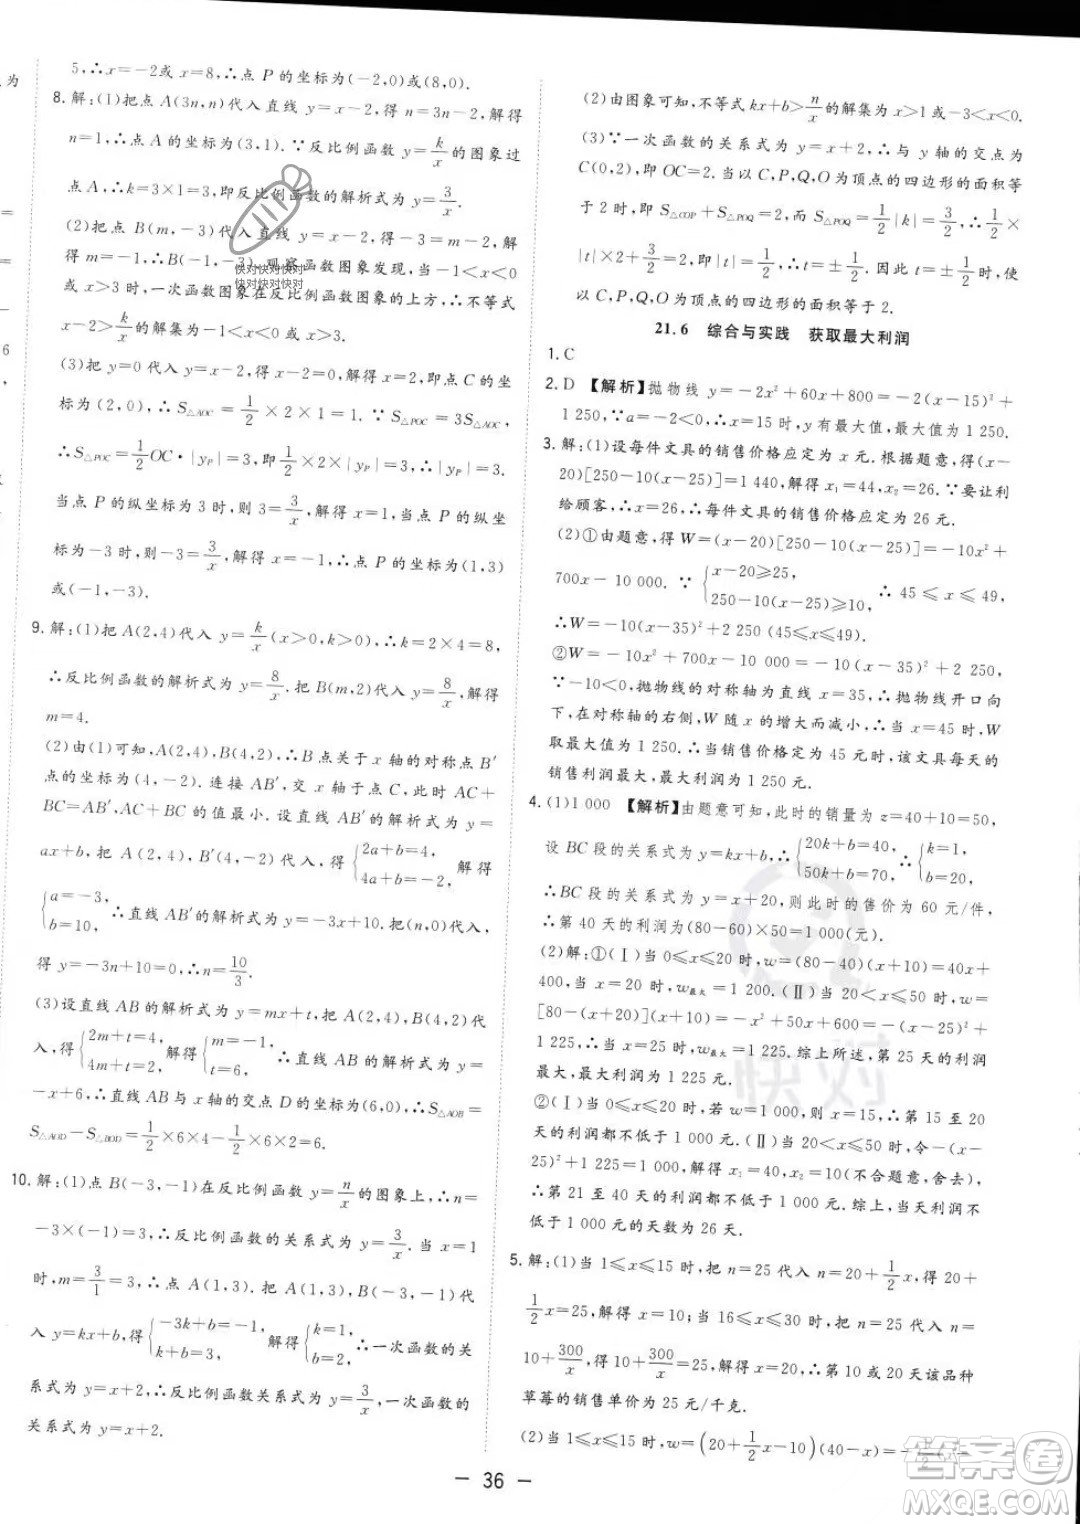 为
=
=
6
,
5,∴x=-2或x=8,∴点 P 的坐标为(-2,0)或(8,0).
8.解:(1)把点 A(3n,n)代入直线 y=x-2,得 n=3n-2,解得
n=1,∴点 A 的坐标为(3,1).∵反比例函数 y=k/x 的图象过
点 A,∴k=3×1=3,即反比例函数的解析式为 y=3/x.
(2)把点 B(m,-3)代入直线 y=x-2,得 -3=m-2,解
得 m=-1,∴B(-1,-3).观察函数图象发现,当-1<x<0
或 x>3 时,一次函数图象在反比例函数图象的上方,∴不等式
x-2>k/x 的解集为-1<x<0或x>3.
(3)把 y=0 代入 y=x-2,得 x-2=0,解得 x=2,即点 C 的坐
标为(2,0),∴S△AOC=1/2×2×1=1.∵S△POC=3S△AOC,
∴S△POC=1/2OC·|yP|=3,即1/2×2×|yP|=3,∴|yP|=3.
当点 P 的纵坐标为 3 时,则 3=3/x,解得 x=1;当点 P 的纵坐
标为-3 时,则-3=3/x,解得 x=-1,∴点 P 的坐标为(1,3)
或(-1,-3).
9.解:(1)把 A(2,4)代入 y=k/x(x>0,k>0),∴k=2×4=8,
∴反比例函数的解析式为 y=8/x.把 B(m,2)代入 y=8/x,解得
m=4.
(2)由(1)可知,A(2,4),B(4,2),∴B点关于 x 轴的对称点 B′
点的坐标为(4,-2).连接 AB′,交 x 轴于点 C,此时 AC+
BC=AB′,AC+BC 的值最小.设直线 AB′的解析式为 y=
ax+b,把 A(2,4),B′(4,-2)代入,得{2a+b=4, 4a+b=-2,解得
{a=-3, b=10,∴直线 AB′的解析式为 y=-3x+10.把(n,0)代入,
得 y=-3n+10=0,∴n=10/3.
(3)设直线 AB 的解析式为 y=mx+t,把 A(2,4),B(4,2)代
入,得{2m+t=4, 4m+t=2,解得{m=-1, t=6,∴直线 AB 的解析式为 y=
-x+6,∴直线 AB 与 x 轴的交点 D 的坐标为(6,0),∴S△AOB=
S△AOD-S△BOD=1/2×6×4-1/2×6×2=6.
10.解:(1)点 B(-3,-1)在反比例函数 y=n/x 的图象上,∴n=
-3×(-1)=3,∴反比例函数的关系式为 y=3/x.当 x=1
时,m=3/1=3,∴点 A(1,3).把 A(1,3),B(-3,-1)代
入 y=kx+b,得{-3k+b=-1, k+b=3,解得{k=1, b=2,∴一次函数的关
系式为 y=x+2,∴反比例函数关系式为 y=3/x,一次函数的
关系式为 y=x+2.
(2)由图象可知,不等式 kx+b>n/x 的解集为 x>1 或-3<x<0.
(3)∵一次函数的关系式为 y=x+2,∴与 y 轴的交点为
C(0,2),∴OC=2.当以 C,P,Q,O 为顶点的四边形的面积等
于 2 时,即 S△COP+S△POQ=2,而 S△POQ=1/2|k|=3/2,∴1/2×
|t|×2+3/2=2,∴|t|=1/2,∴t=±1/2,∴当 t=±1/2 时,使
以 C,P,Q,O 为顶点的四边形的面积等于 2.
21.6 综合与实践 获取最大利润
1.C
2.D 【解析】抛物线 y=-2x²+60x+800=-2(x-15)²+
1 250.∵a=-2<0,∴x=15 时,y 有最大值,最大值为 1 250.
3.解:(1)设每件文具的销售价格应定为 x 元.根据题意,得(x-
20)[250-10(x-25)]=1 440,解得 x₁=44,x₂=26.∵要让利
给顾客,∴x=26,∴每件文具的销售价格应定为 26 元.
(2)①由题意,得 W=(x-20)[250-10(x-25)]=-10x²+
700x-10 000.∵{x-20≥25, 250-10(x-25)≥10,∴45≤x≤49,
∴W=-10(x-35)²+2 250(45≤x≤49).
②W=-10x²+700x-10 000=-10(x-35)²+2 250.
∵-10<0,抛物线的对称轴为直线 x=35,∴抛物线开口向
下,在对称轴的右侧,W 随 x 的增大而减小,∴当 x=45 时,W
取最大值为 1 250.∴当销售价格定为 45 元时,该文具每天的
销售利润最大,最大利润为 1 250 元.
4.(1)1 000 【解析】由题意可知,此时的销量为 z=40+10=50,
设 BC 段的关系式为 y=kx+b,∴{20k+b=40, 50k+b=70,∴{k=1, b=20,
∴BC 段的关系式为 y=x+20,则此时的售价为 60 元/件,
∴第 40 天的利润为(80-60)×50=1 000(元).
(2)解:①(Ⅰ)当 0≤x≤20 时,w=(80-40)(x+10)=40x+400,
当 x=20 时,w最大=1 200.(Ⅱ)当 20<x≤50 时,w=
[80-(x+20)](x+10)=-x²+50x+600=-(x-25)²+
1 225,∴当 x=25 时,w最大=1 225.综上所述,第 25 天的利润
最大,最大利润为 1 225 元.
②(Ⅰ)当 0≤x≤20 时,若 w=1 000,则 x=15,∴第 15 至 20
天的利润都不低于 1 000 元.(Ⅱ)当 20<x≤50 时,令-(x-
25)²+1 225=1 000,解得 x₁=40,x₂=10(不合题意,舍去),
∴第 21 至 40 天的利润都不低于 1 000 元.综上,当天利润不
低于 1 000 元的天数为 26 天.
5.解:(1)当 1≤x≤15 时,把 n=25 代入 n=20+1/2x,得 20+
1/2x=25,解得 x=10;当 16≤x≤30 时,把 n=25 代入 n=
10+300/x,得 10+300/x=25,解得 x=20.∴第 10 或 20 天该品种
草莓的销售单价为 25 元/千克.
(2)当 1≤x≤15 时,w=(20+1/2x-10)(40-x)=-1/2(x-
— 36 —
快对快对快对
快对快对快对
快对
答案圈
MXQE.COM